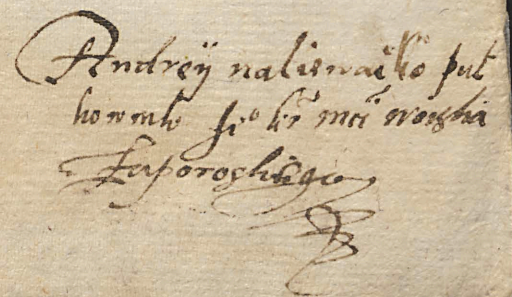 Andreÿ naliewaiko puł
kownik Je° kr mći woiska
Zaporoskiego